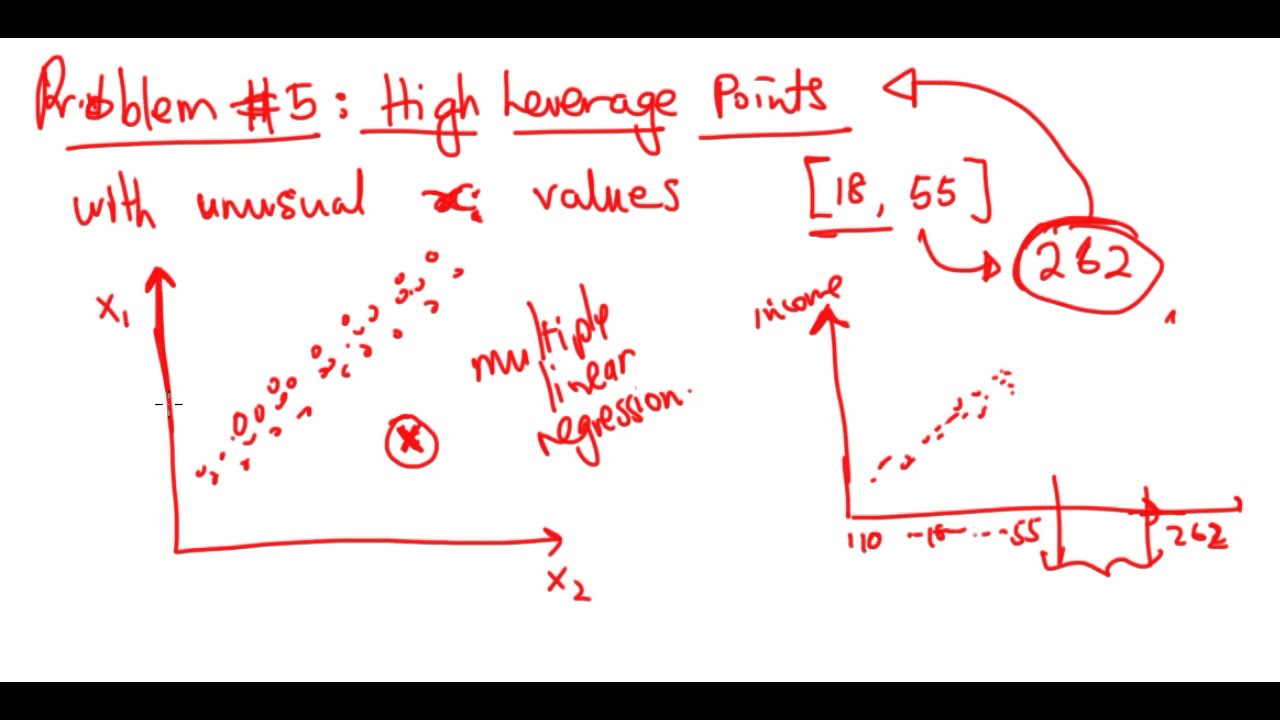 Problem #5: High Leverage Points
with unusual xi values
[18, 55]
262
x1
multiple
linear
regression.
x2
income
110 --18--...-55
262